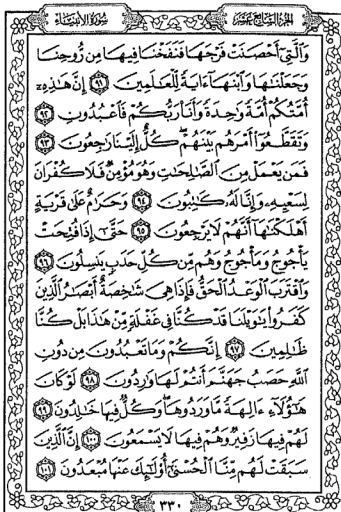 الجزء السابع عشر سورة الأنبياء
وَالَّتِي أَحْصَنَتْ فَرْجَهَا فَنَفَخْنَا فِيهَا مِن رُّوحِنَا
وَجَعَلْنَاهَا وَابْنَهَا آيَةً لِّلْعَالَمِينَ ۝٩١ إِنَّ هَٰذِهِ
أُمَّتُكُمْ أُمَّةً وَاحِدَةً وَأَنَا رَبُّكُمْ فَاعْبُدُونِ ۝٩٢
وَتَقَطَّعُوا أَمْرَهُم بَيْنَهُمْ كُلٌّ إِلَيْنَا رَاجِعُونَ ۝٩٣
فَمَن يَعْمَلْ مِنَ الصَّالِحَاتِ وَهُوَ مُؤْمِنٌ فَلَا كُفْرَانَ
لِسَعْيِهِ وَإِنَّا لَهُ كَاتِبُونَ ۝٩٤ وَحَرَامٌ عَلَىٰ قَرْيَةٍ
أَهْلَكْنَاهَا أَنَّهُمْ لَا يَرْجِعُونَ ۝٩٥ حَتَّىٰ إِذَا فُتِحَتْ
يَأْجُوجُ وَمَأْجُوجُ وَهُم مِّن كُلِّ حَدَبٍ يَنسِلُونَ ۝٩٦
وَاقْتَرَبَ الْوَعْدُ الْحَقُّ فَإِذَا هِيَ شَاخِصَةٌ أَبْصَارُ الَّذِينَ
كَفَرُوا يَا وَيْلَنَا قَدْ كُنَّا فِي غَفْلَةٍ مِّنْ هَٰذَا بَلْ كُنَّا
ظَالِمِينَ ۝٩٧ إِنَّكُمْ وَمَا تَعْبُدُونَ مِن دُونِ
اللَّهِ حَصَبُ جَهَنَّمَ أَنتُمْ لَهَا وَارِدُونَ ۝٩٨ لَوْ كَانَ
هَٰؤُلَاءِ آلِهَةً مَّا وَرَدُوهَا وَكُلٌّ فِيهَا خَالِدُونَ ۝٩٩
لَهُمْ فِيهَا زَفِيرٌ وَهُمْ فِيهَا لَا يَسْمَعُونَ ۝١٠٠ إِنَّ الَّذِينَ
سَبَقَتْ لَهُم مِّنَّا الْحُسْنَىٰ أُولَٰئِكَ عَنْهَا مُبْعَدُونَ ۝١٠١
٣٣٠